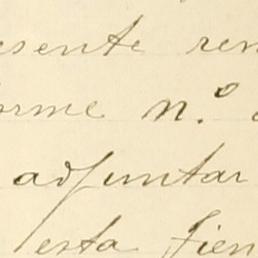 esente
orme n.º
adjuntar
esta